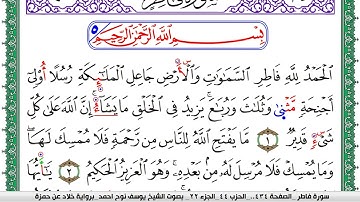 سورة فاطر
بِسْمِ اللَّهِ الرَّحْمَٰنِ الرَّحِيمِ
الْحَمْدُ لِلَّهِ فَاطِرِ السَّمَٰوَٰتِ وَالْأَرْضِ جَاعِلِ الْمَلَٰٓئِكَةِ رُسُلًا أُو۟لِىٓ
أَجْنِحَةٍ مَّثْنَىٰ وَثُلَٰثَ وَرُبَٰعَ ۚ يَزِيدُ فِى الْخَلْقِ مَا يَشَآءُ ۚ إِنَّ اللَّهَ عَلَىٰ كُلِّ
شَىْءٍ قَدِيرٌ ١ مَّا يَفْتَحِ اللَّهُ لِلنَّاسِ مِن رَّحْمَةٍ فَلَا مُمْسِكَ لَهَا ۖ
وَمَا يُمْسِكْ فَلَا مُرْسِلَ لَهُۥ مِنۢ بَعْدِهِۦ ۚ وَهُوَ الْعَزِيزُ الْحَكِيمُ ٢ يَٰٓأَيُّهَا
سورة فاطر _الصفحة ٤٣٤_ الحزب ٤٤_الجزء ٢٢ _بصوت الشيخ يوسف نوح أحمد_برواية خلاد عن حمزة